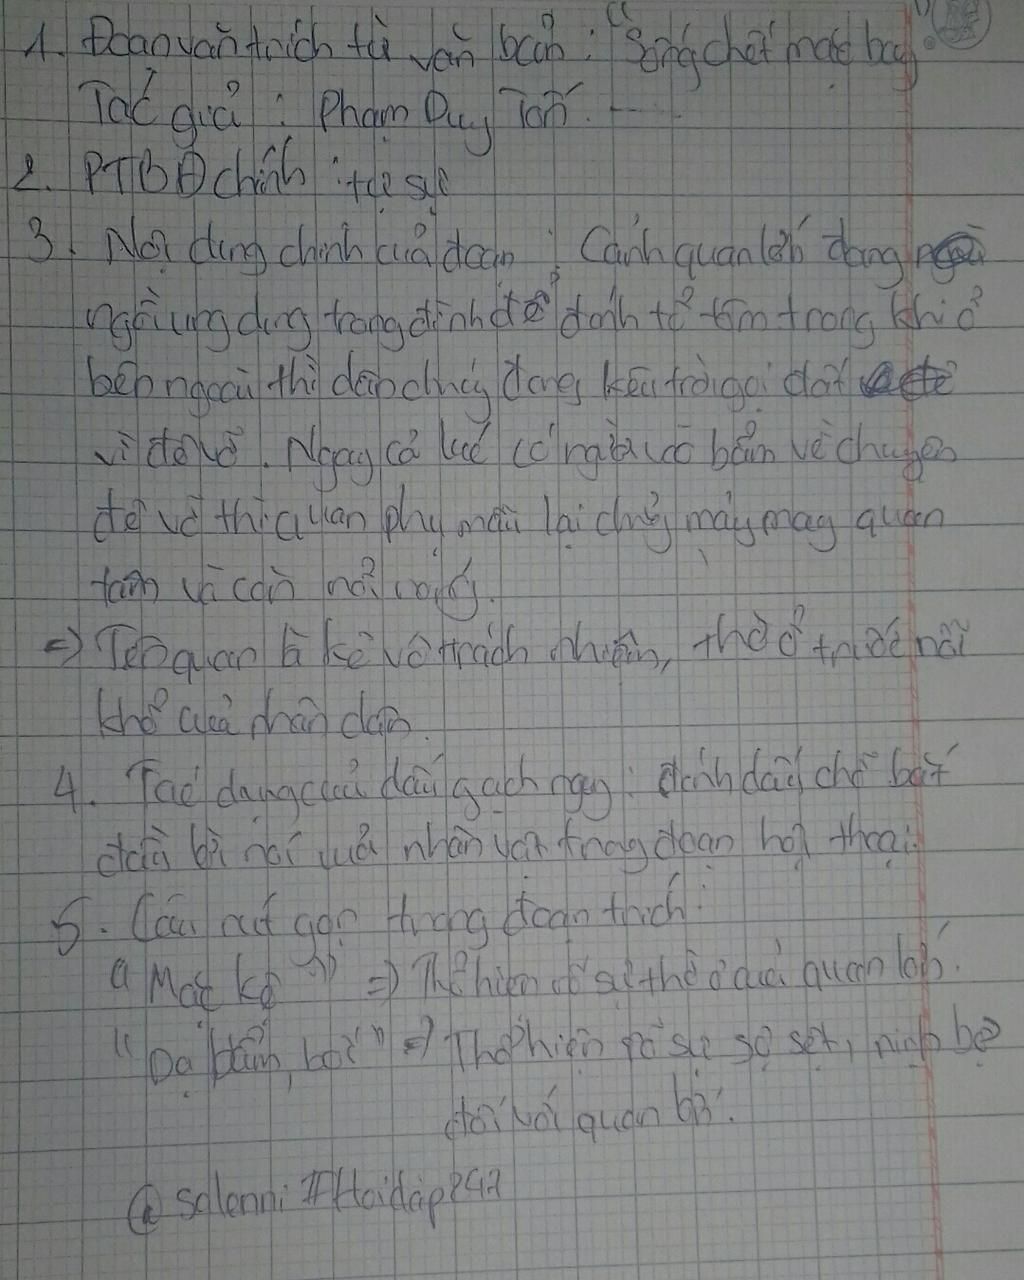 1. Đoạn văn trích từ văn bản : "Sống chết mặc bay"
Tác giả : Phạm Duy Tốn.
2. PTBĐ chính : tự sự
3. Nội dung chính của đoạn : Cảnh quan lớn đang
ngồi ung dung trong đình để đánh tổ tôm trong khi ở
bên ngoài thì dân chúng đang kêu trời gọi đất
vì đê vỡ. Ngay cả lúc có người vô bẩm về chuyện
đê vỡ thì quan phụ mẫu lại chẳng mảy may quan
tâm và còn nổi cáu.
=> Tên quan là kẻ vô trách nhiệm, thờ ơ trước nỗi
khổ của nhân dân.
4. Tác dụng của dấu gạch ngang : đánh dấu chỗ bắt
đầu lời nói của nhân vật trong đoạn hội thoại.
5. Câu rút gọn trong đoạn trích :
"Mặc kệ" => Thể hiện rõ sự thờ ơ của quan lớn.
"Dạ bẩm, bốc" => Thể hiện rõ sự sợ sệt, nịnh bợ
đối với quan lớn.
@ salenni #Hoidap247